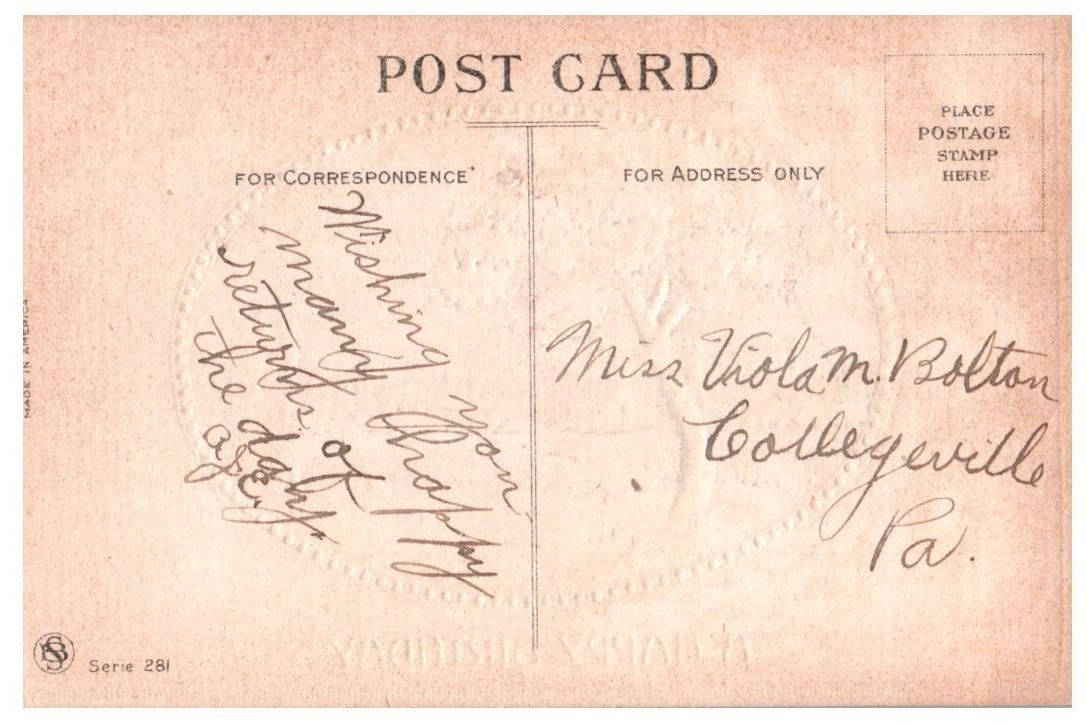 POST CARD
FOR CORRESPONDENCE
FOR ADDRESS ONLY
PLACE
POSTAGE
STAMP
HERE
Wishing you
many happy
returns of
the day.
Miss Viola M. Bolton
Collegeville
Pa.
MADE IN AMERICA
Serie 281
A HAPPY BIRTHDAY